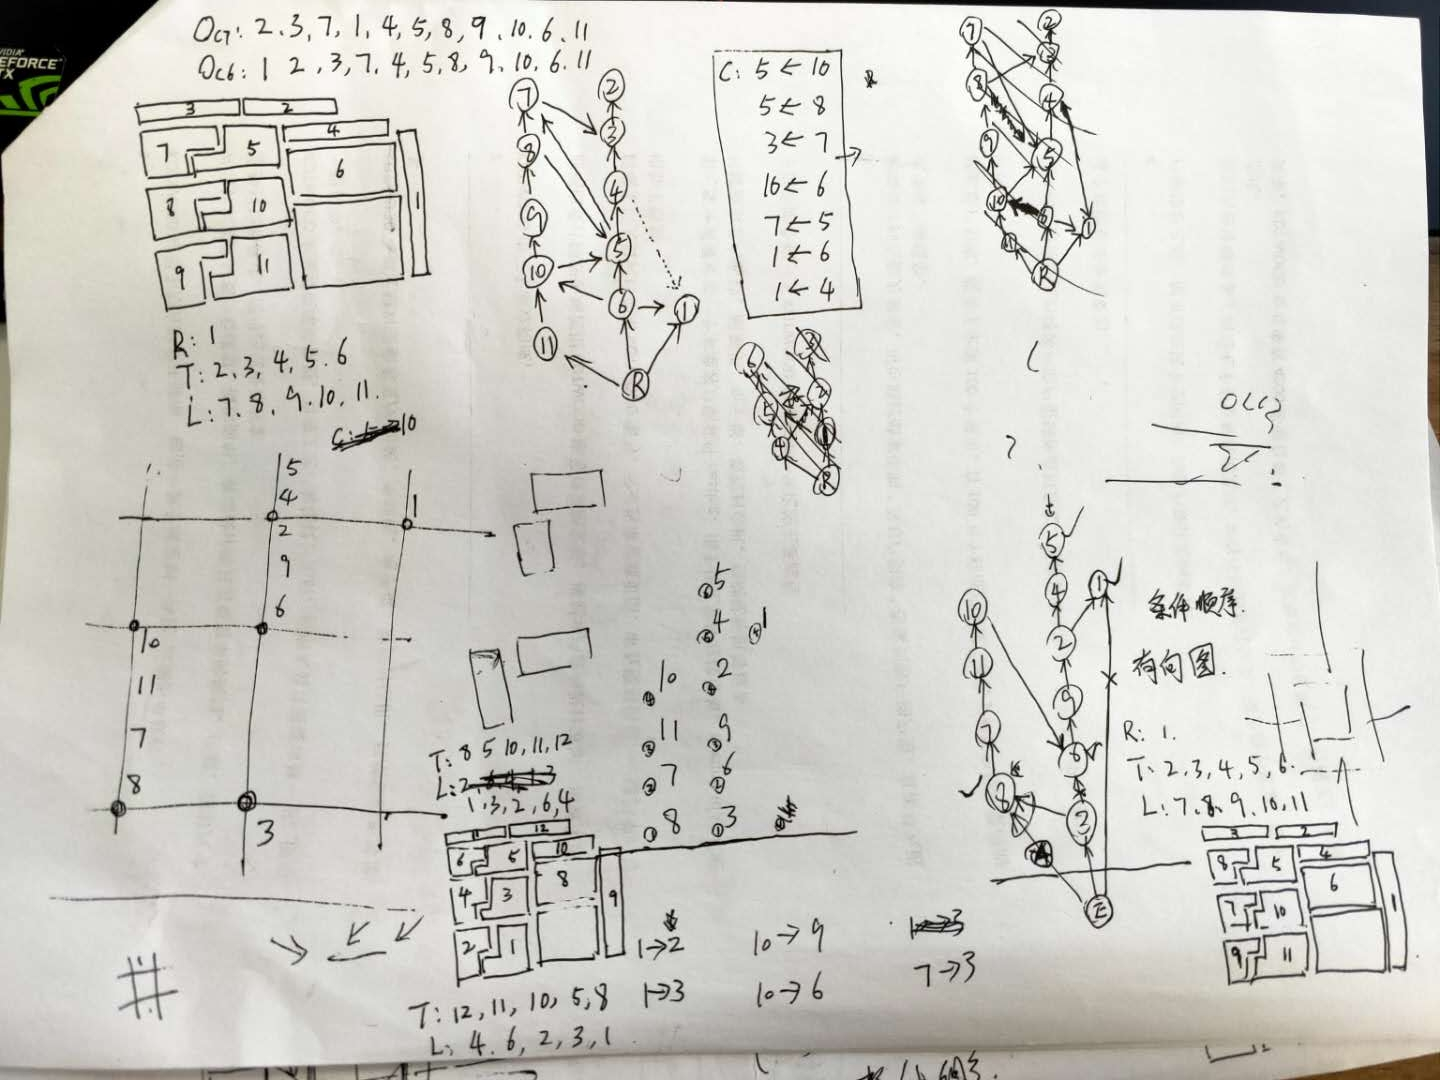 OC7: 2.3,7,1,4,5,8,9.10.6.11
OC6: 1 2,3,7.4,5,8,9.10,6.11
NVIDIA
GEFORCE
RTX
3
2
4
7
5
6
8
10
1
9
11
R: 1
T: 2,3,4,5.6
L: 7.8,9.10,11.
10
7
2
8
3
4
9
5
10
6
1
11
R
C: 5 ← 10
5 ← 8
3 ← 7
10 ← 6
7 ← 5
1 ← 6
1 ← 4
7
2
8
3
4
9
5
10
6
1
11
R
R
OCC
5
4
1
2
9
6
10
11
7
8
3
5
4
1
10
2
11
9
7
6
8
3
T: 8 5 10,11,12
L: 2,
1.3,2,6,4
11
12
6
5
10
4
3
8
9
2
1
1→2
10→9
1→3
1→3
10→6
7→3
T: 12,11,10,5,8
L: 4.6,2,3,1
5
4
1
10
2
11
9
7
6
8
3
条件顺序.
有向图.
R: 1.
T: 2,3,4,5,6.
L: 7.8,9.10,11
3
2
4
8
5
6
7
10
1
9
11